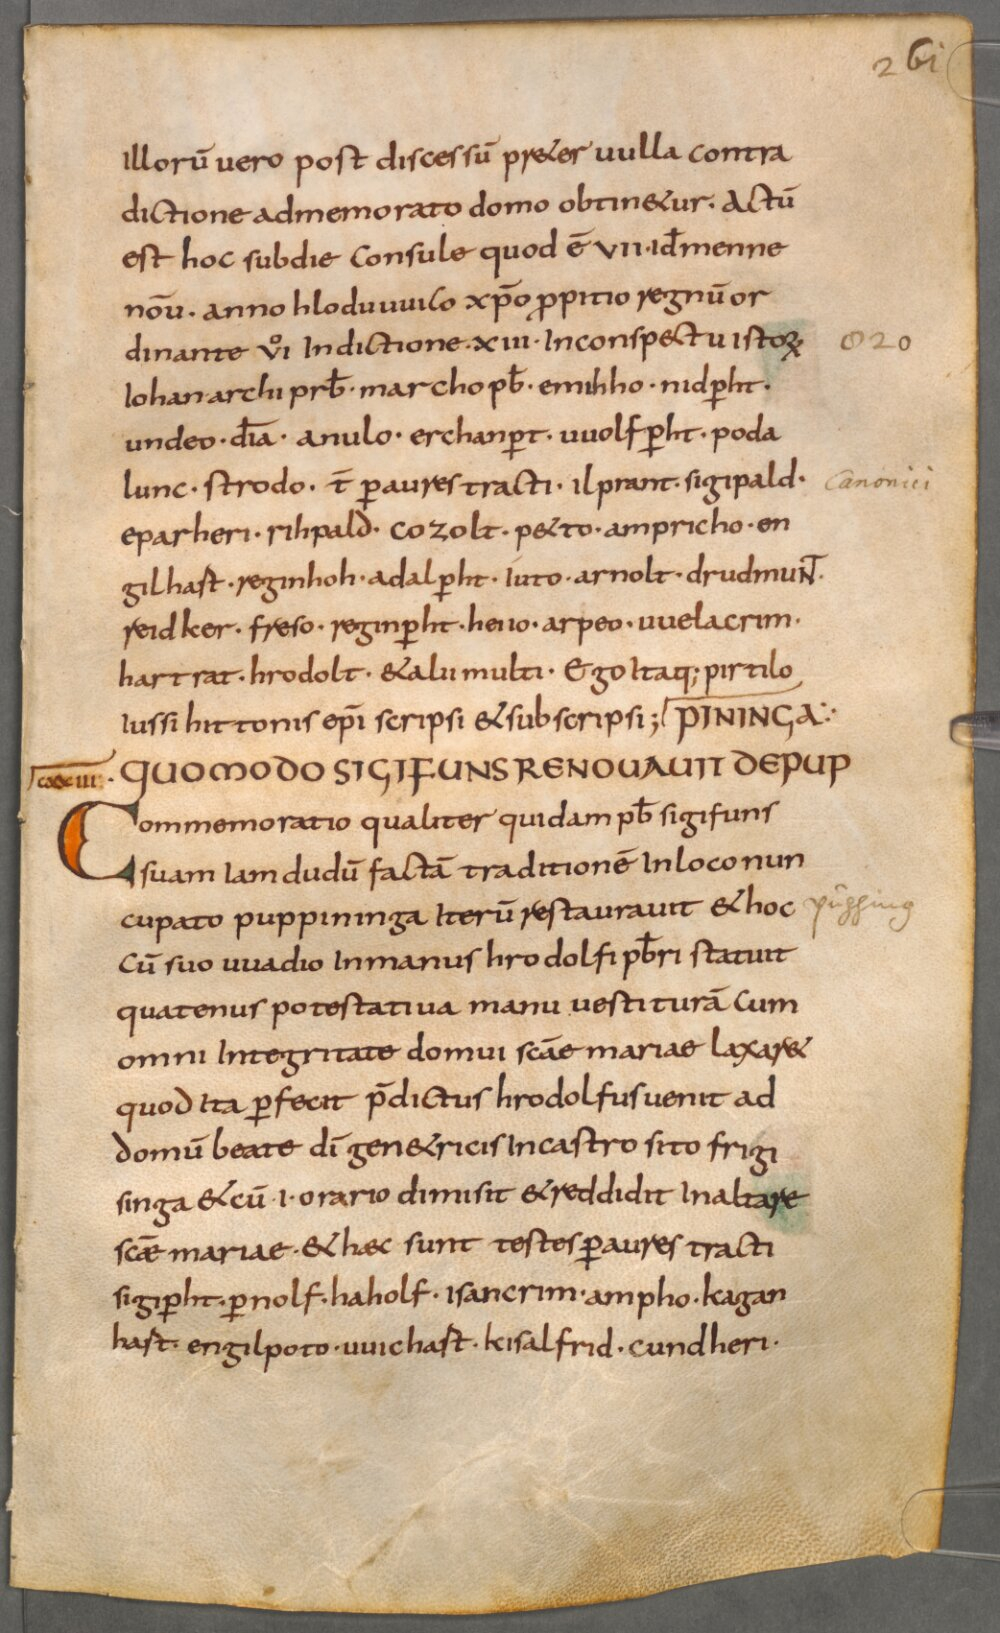 261
Illorū uero post discessū pr&er uulla contra
dictione admemorato domo obtin&ur. Actū
est hoc subdie Consule quod ē VII. id̄ menne
nōu. anno hloduuuico xp̄o ꝓpitio regnū or
dinante VI Indictione. XIII. Inconsp&ctu istoꝝ
820
Iohan archi prb̄. marcho pb̄. emihho. nidꝑht.
undeo. dīa. anulo. erchanꝑt. uuolfꝑht. poda
lunc. strodo. t̄ ꝑ aures tracti. ilprant. sigipald.
Canonici
eparheri. rihpald. cozolt. p&to. ampricho. en
gilhast. reginhoh. adalꝑht. Iuto. arnolt. drudmuNT.
reidker. freso. reginꝑht. heiio. arpeo. uuelacrim.
hartrat. hrodolt. &alii multi. Ego Itaq; pirtilo
Iussi hittonis ep̄i scripsi &subscripsi; PININGA:
CCCXCIII. QUOMODO SIGIFUNS RENOUAUIT DEPUP
Commemoratio qualiter quidam pb̄ sigifuns
suam Iam dudū factā traditionē Inloco nun
cupato puppininga Iterū restaurauit &hoc
Cū suo uuadio Inmanus hrodolfi pb̄ri statuit
quatenus potestatiua manu uestiturā Cum
omni Integritate domui scāe mariae laxar&
quod Ita ꝑfecit p̄dictus hrodolfus uenit ad
domū beate dī gen&ricis Incastro sito frigi
singa &cū .I. orario dimisit &reddidit Inaltare
scāe mariae. &haec sunt testes ꝑ aures tracti
sigiꝑht. ꝑnolf. haholf. Isancrim. ampho. kagan
hast. engilpoto. uuichast. kisalfrid. cundheri.